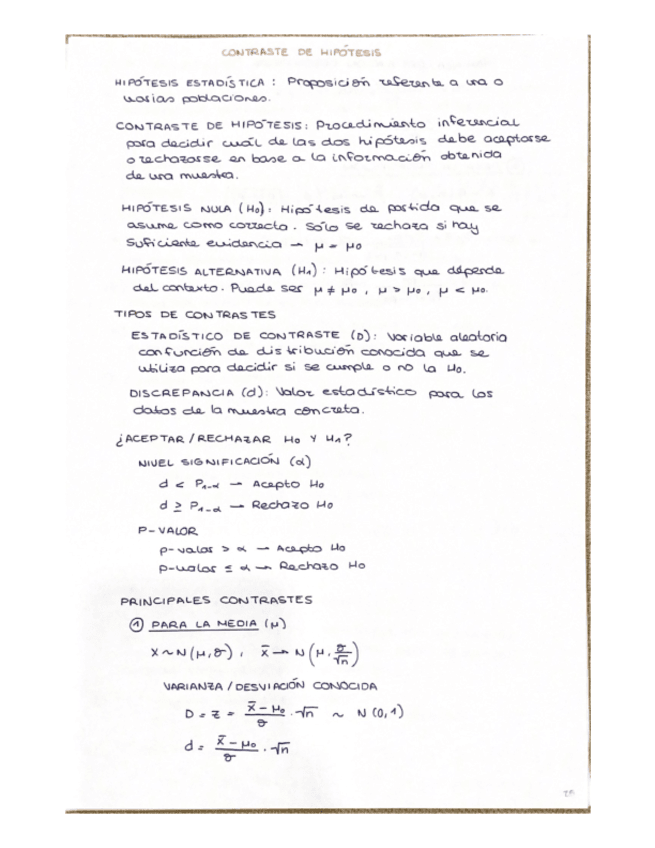 CONTRASTE DE HIPÓTESIS
HIPÓTESIS ESTADÍSTICA : Proposición referente a una o
varias poblaciones.
CONTRASTE DE HIPÓTESIS: Procedimiento inferencial
para decidir cuál de las dos hipótesis debe aceptarse
o rechazarse en base a la información obtenida
de una muestra.
HIPÓTESIS NULA (H₀): Hipótesis de partida que se
asume como correcta. Sólo se rechaza si hay
suficiente evidencia → μ = μ₀
HIPÓTESIS ALTERNATIVA (H₁) : Hipótesis que depende
del contexto. Puede ser μ ≠ μ₀ , μ > μ₀ , μ < μ₀.
TIPOS DE CONTRASTES
ESTADÍSTICO DE CONTRASTE (D): Variable aleatoria
con función de distribución conocida que se
utiliza para decidir si se cumple o no la H₀.
DISCREPANCIA (d): Valor estadístico para los
datos de la muestra concreta.
¿ACEPTAR/RECHAZAR H₀ Y H₁?
NIVEL SIGNIFICACIÓN (α)
d < P₁₋α → Acepto H₀
d ≥ P₁₋α → Rechazo H₀
P-VALOR
p-valor > α → Acepto H₀
p-valor ≤ α → Rechazo H₀
PRINCIPALES CONTRASTES
① PARA LA MEDIA (μ)
X ~ N(μ,σ) , x̄ → N(μ, σ/√n)
VARIANZA / DESVIACIÓN CONOCIDA
D = z = (x̄ - μ₀)/σ · √n ~ N(0,1)
d = (x̄ - μ₀)/σ · √n